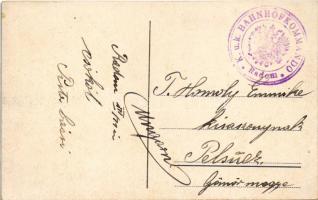 K. u. k. BAHNHOFKOMMANDO
Radom
Radom
csókol
Ungarn
T. Homoly Emmike
kisasszonynak
Pelsücz
Gömör megye